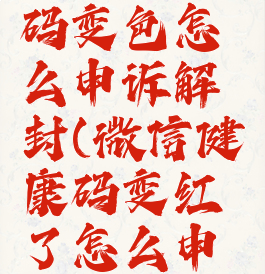 码变色怎
么申诉解
封(微信健
康码变红
了怎么申